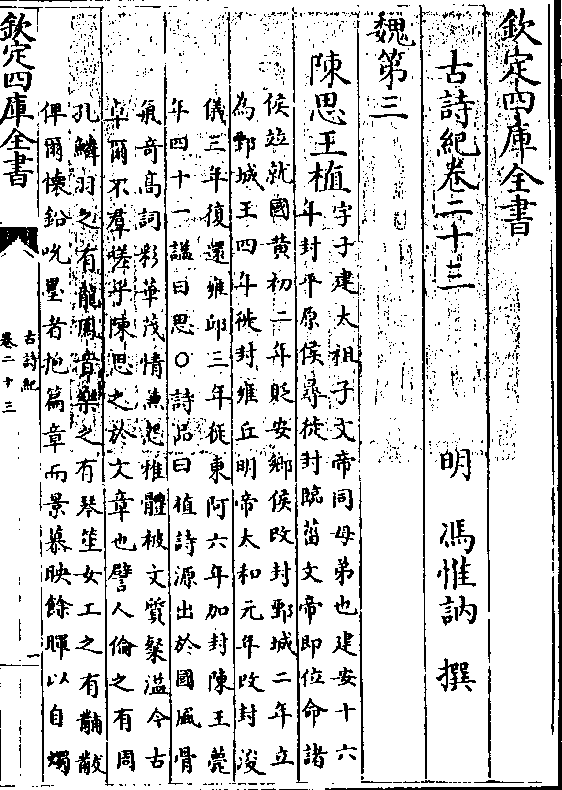 欽定四庫全書
古詩紀卷二十三 明 馮惟訥 撰
魏第三
陳思王植 字子建太祖子文帝同母弟也建安十六
年封平原侯尋徙封臨菑文帝即位命諸
侯並就國黄初二年貶安鄉侯改封鄄城二年立
為鄄城王四年徙封雍丘明帝太和元年改封浚
儀三年復還雍邱三年從東阿六年加封陳王薨
年四十一諡曰思○詩品曰植詩源出於國風骨
氣奇高詞彩華茂情兼怨雅體被文質粲溢今古
卓爾不羣嗟乎陳思之於文章也譬人倫之有周
孔鱗羽之有龍鳳音樂之有琴笙女工之有黼黻
俾爾懷鉛吮墨者抱篇章而景慕映餘暉以自燭
欽定四庫全書
古詩紀
卷二十三
一